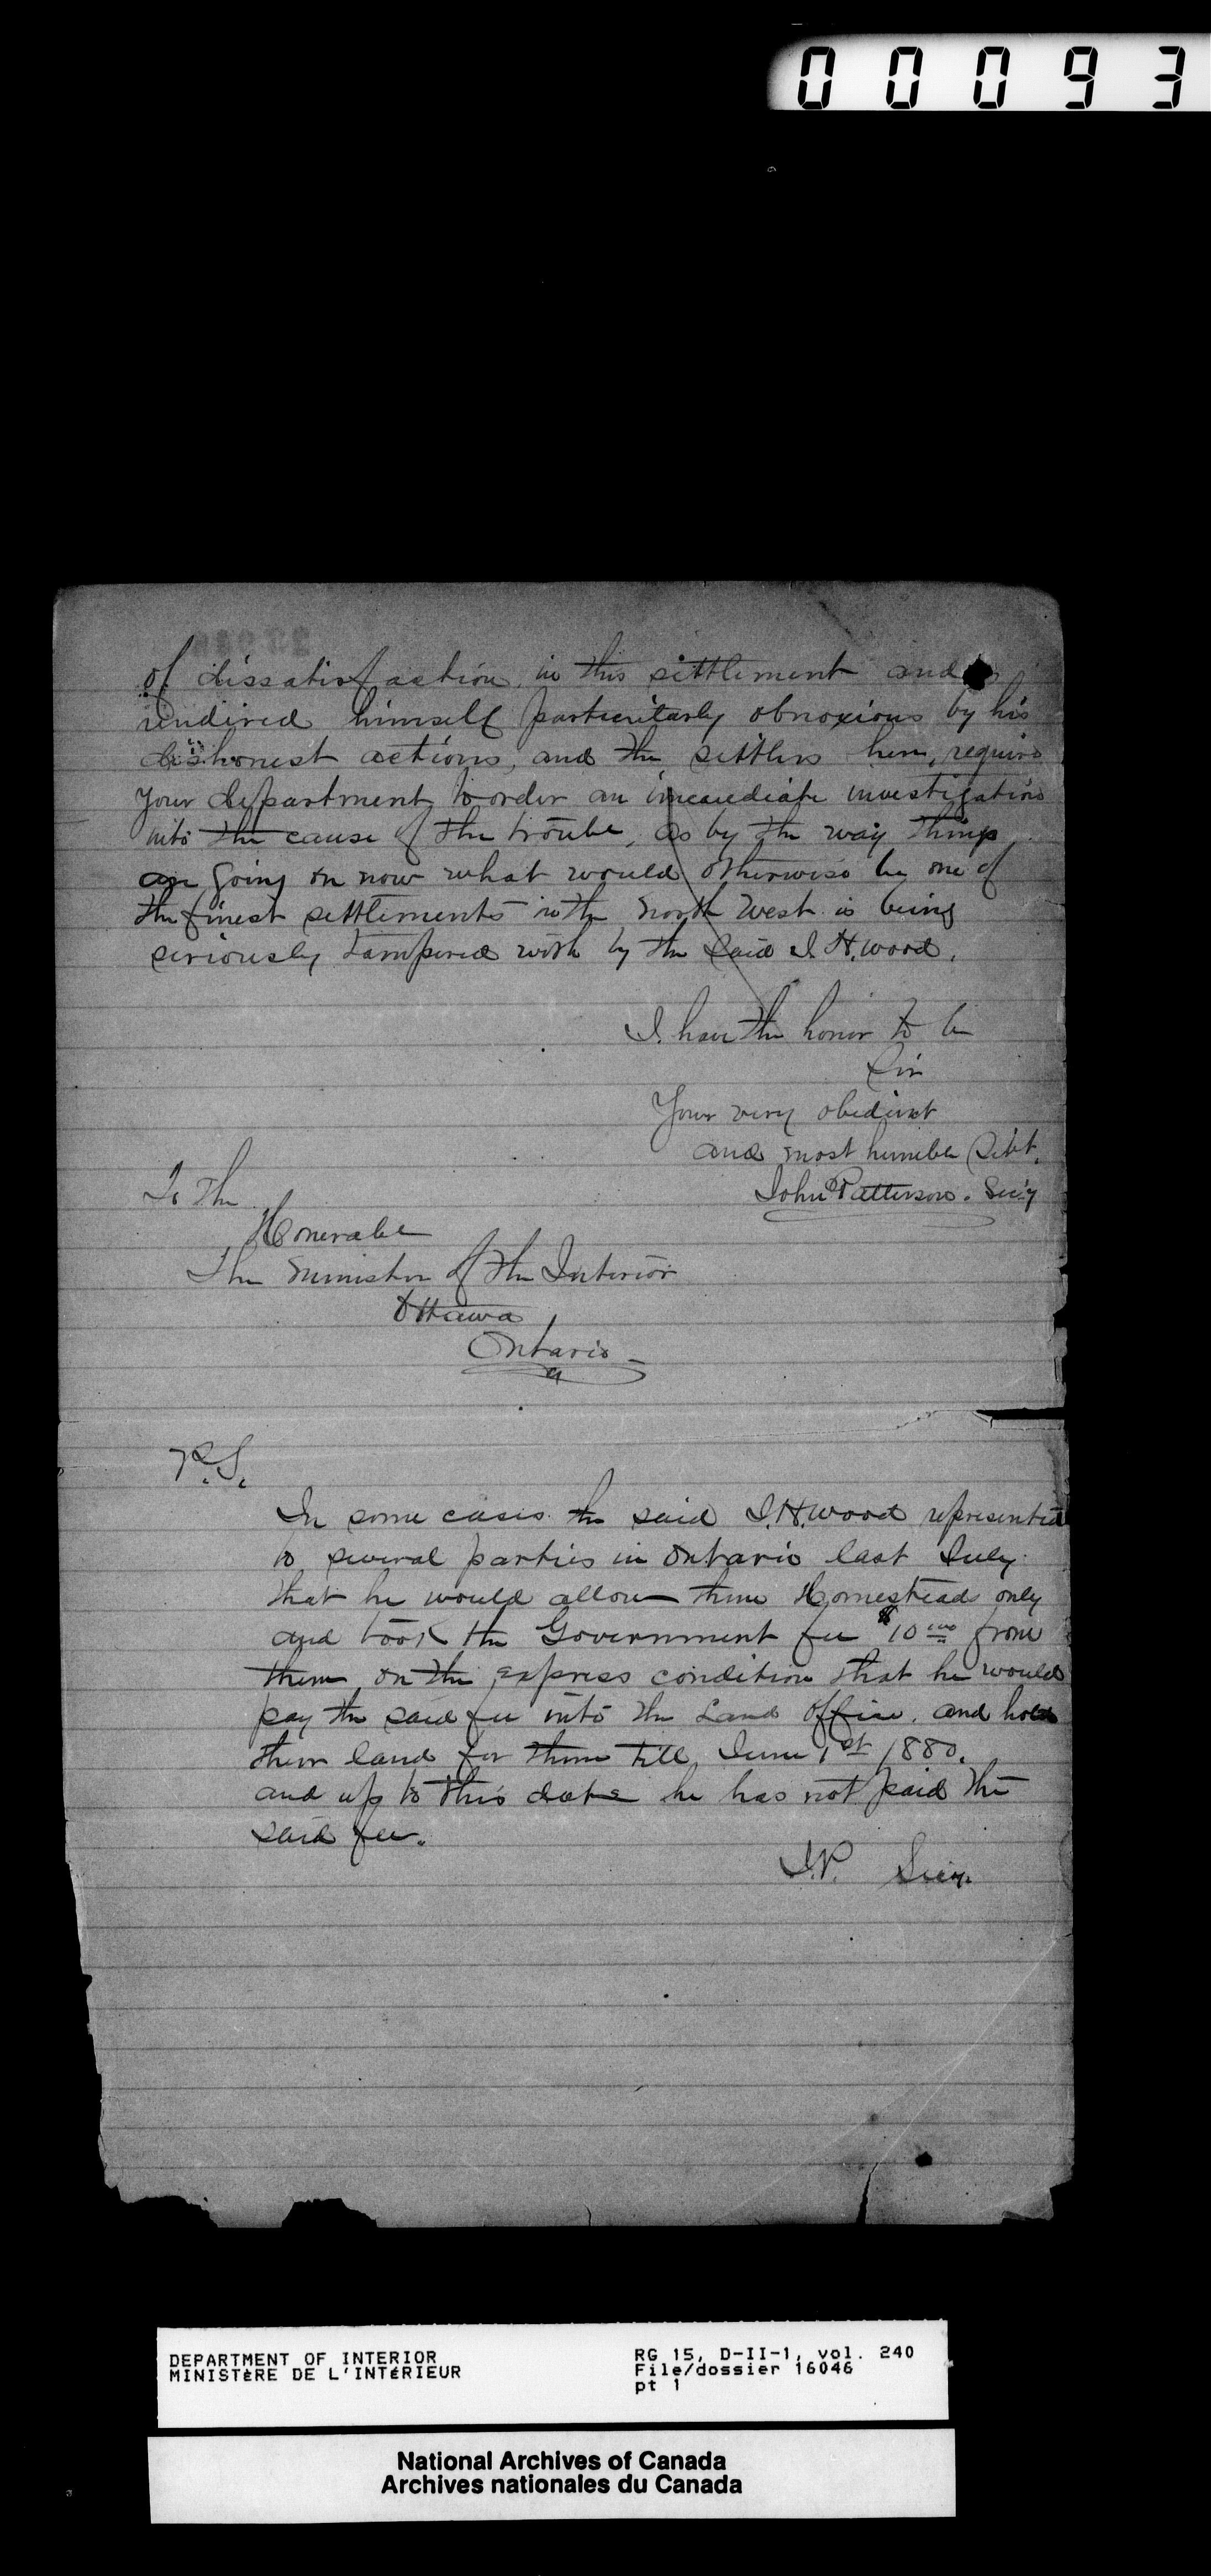 00093
of dissatisfaction, in this settlement and
rendired himself particularly obnoxious by his
dishonest actions, and the settlers here, require
your department to order an immediate investigation
into the cause of the trouble, as by the way things
are going on now what would otherwise be one of
the finest settlements in the North West is being
seriously tampered with by the said J. H. Wood.
I have the honor to be
Sir
Your very obedient
and most humble Servt.
John Patterson. Sec'y
To The
Honerable
The Minister of the Interior
Ottawa
Ontario
P.S.
In some cases the said J. H. Wood represented
to several parties in Ontario last July
that he would allow them Homesteads only
and took the Government fee $10 from
them, on the express condition that he would
pay the said fee into the Land Office, and hold
their land for them till June 1st 1880.
and up to this date he has not paid the
said fee.
J.P. Secy.
DEPARTMENT OF INTERIOR
MINISTÈRE DE L'INTÉRIEUR
RG 15, D-II-1, vol. 240
File/dossier 16046
pt 1
National Archives of Canada
Archives nationales du Canada